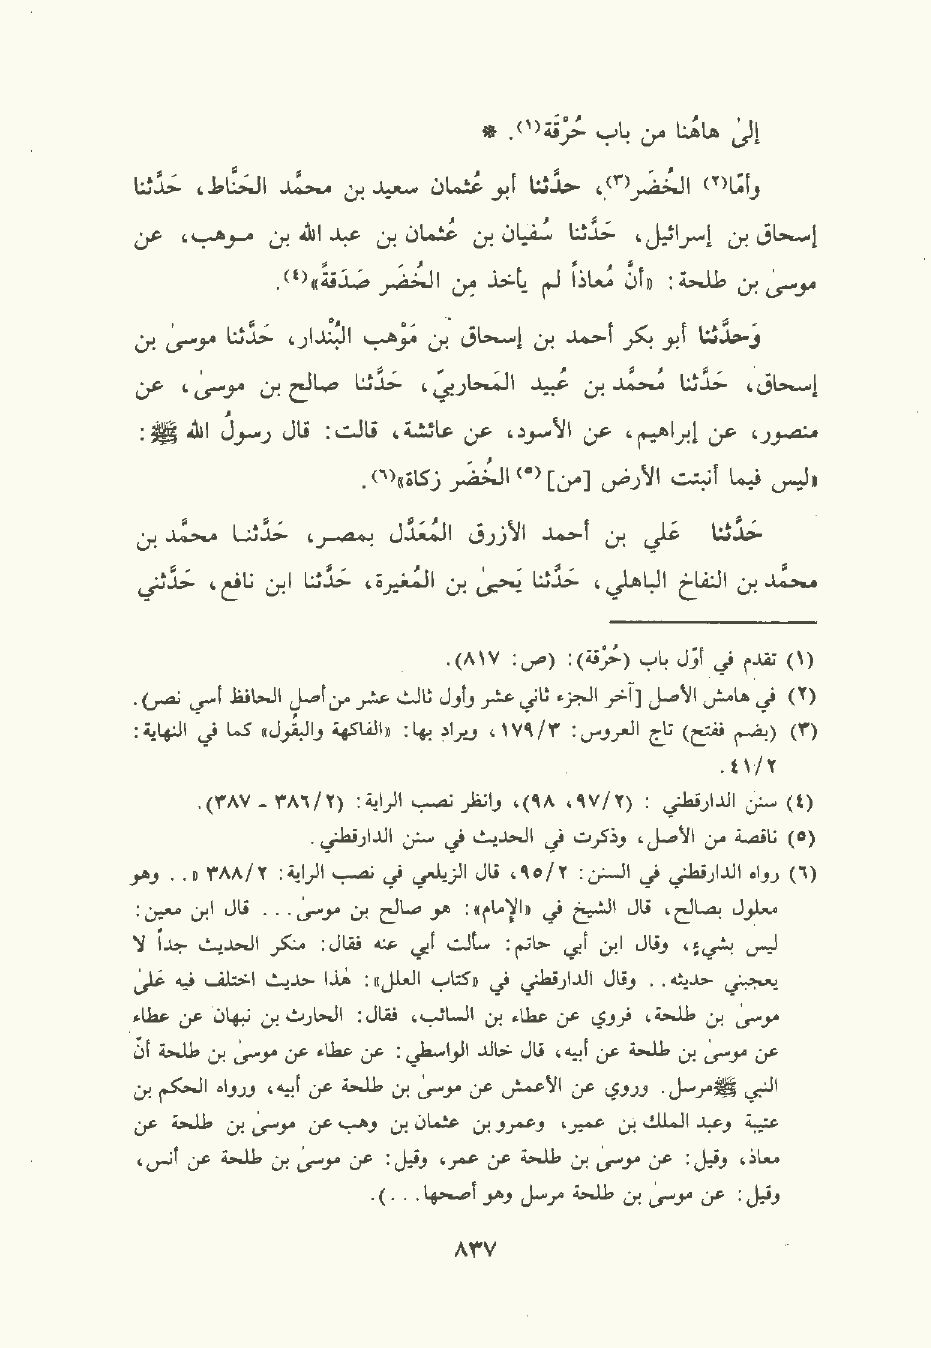 إلىٰ هاهُنا من باب خُرْقَة(١). *
وأمّا(٢) الخُضَر(٣)، حدّثنا أبو عُثمان سعيد بن محمّد الحَنّاط، حَدّثنا
إسحاق بن إسرائيل، حَدّثنا سُفيان بن عُثمان بن عبد الله بن موهب، عن
موسىٰ بن طلحة: «أنّ مُعاذاً لم يأخذ مِن الخُضَر صَدَقةً»(٤).
وَحدّثنا أبو بكر أحمد بن إسحاق بن مَوْهب البُنْدار، حَدّثنا موسىٰ بن
إسحاق، حَدّثنا مُحمّد بن عُبيد المَحاربيّ، حَدّثنا صالح بن موسىٰ، عن
منصور، عن إبراهيم، عن الأسود، عن عائشة، قالت: قال رسولُ الله ﷺ:
«ليس فيما أنبتت الأرض [من](٥) الخُضَر زكاة»(٦).
حَدّثنا عَلي بن أحمد الأزرق المُعَدّل بمصر، حَدّثنا محمّد بن
محمّد بن النفاخ الباهلي، حَدّثنا يَحيىٰ بن المُغيرة، حَدّثنا ابن نافع، حَدّثني
(١) تقدم في أوّل باب (خُرْقة): (ص: ٨١٧).
(٢) في هامش الأصل [آخر الجزء ثاني عشر وأول ثالث عشر من أصل الحافظ أسي نصر).
(٣) (بضم ففتح) تاج العروس: ١٧٩/٣، ويراد بها: «الفاكهة والبقُول» كما في النهاية:
٤١/٢.
(٤) سنن الدارقطني : (٩٧/٢، ٩٨)، وانظر نصب الراية: (٣٨٦/٢ - ٣٨٧).
(٥) ناقصة من الأصل، وذكرت في الحديث في سنن الدارقطني.
(٦) رواه الدارقطني في السنن: ٩٥/٢، قال الزيلعي في نصب الراية: ٣٨٨/٢ «.. وهو
معلول بصالح، قال الشيخ في «الإمام»: هو صالح بن موسىٰ... قال ابن معين:
ليس بشيء، وقال ابن أبي حاتم: سألت أبي عنه فقال: منكر الحديث جداً لا
يعجبني حديثه.. وقال الدارقطني في «كتاب العلل»: هٰذا حديث اختلف فيه عَلىٰ
موسىٰ بن طلحة، فروي عن عطاء بن السائب، فقال: الحارث بن نبهان عن عطاء
عن موسىٰ بن طلحة عن أبيه، قال خالد الواسطي: عن عطاء عن موسىٰ بن طلحة أنّ
النبي ﷺ مرسل. وروي عن الأعمش عن موسىٰ بن طلحة عن أبيه، ورواه الحكم بن
عتيبة وعبد الملك بن عمير، وعمرو بن عثمان بن وهب عن موسىٰ بن طلحة عن
معاذ، وقيل: عن موسىٰ بن طلحة عن عمر، وقيل: عن موسىٰ بن طلحة عن أنس،
وقيل: عن موسىٰ بن طلحة مرسل وهو أصحها...).
٨٣٧